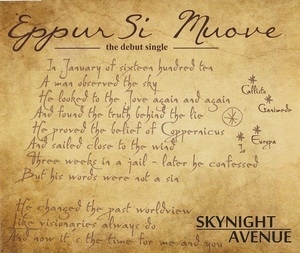 Eppur Si Muove
the debut single
In January of sixteen hundred ten
A man observed the sky
He looked to the Jove again and again
And found the truth behind the lie
He proved the belief of Coppernicus
And sailed close to the wind
Three weeks in a jail - later he confessed
But his words were not a sin
Callisto
Ganimede
Io
Europa
He changed the past worldview
Like visionaries always do
And now it's the time for me and you
SKYNIGHT
AVENUE